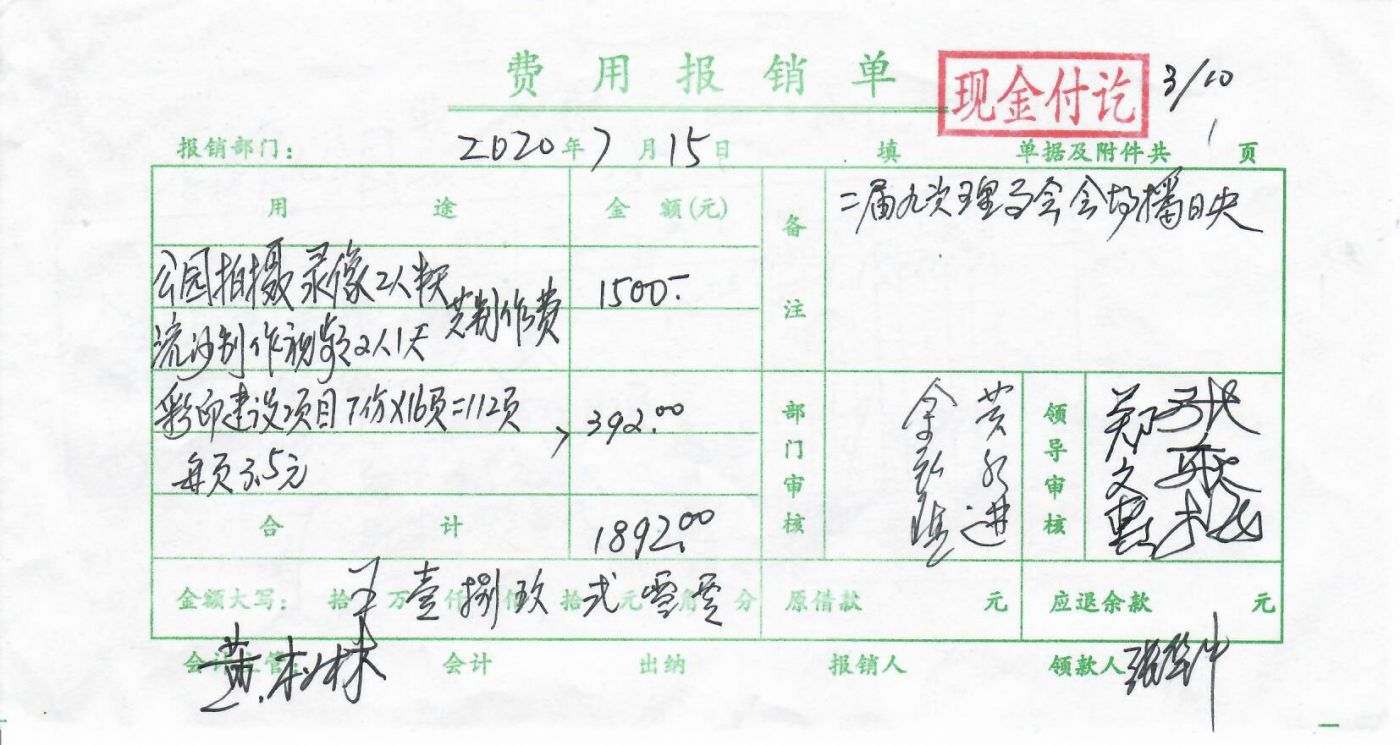 费用报销单
现金付讫
3/10
报销部门：
2020年7月15日
填
单据及附件共1页
用途
金额(元)
备注
二届九次理事会会场播日央
公园拍摄录像2人半天
1500.-
流沙制作视频2人1天
共制作费
彩印建设项目7份X16页=112页
392.00
每页3.5元
合计
1892.00
部门审核
黄
进
领导审核
郑文惠
金额大写：拾万壹仟捌佰玖拾弍元零角零分
原借款元
应退余款元
会计主管：
会计
出纳
报销人
领款人